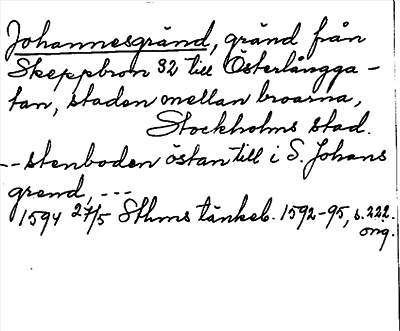 Johannesgränd, gränd från
Skeppbron 32 till Österlångga-
tan, staden mellan broarna,
Stockholms stad.
-- stenboden östan till i S. Johans
grend, ---
1594 27/5 Sthms tänkeb. 1592-95, s. 222.
orig.